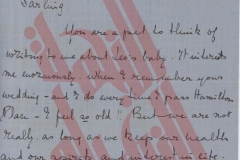 Darling
You are a pet to think of
writing to me about Leo's baby. It interests
me enormously. When I remember your
wedding - and I do every time I pass Hamilton
Place - I feel so old! But we are not
really, as long as we keep our health
and our spirits and interest in life.